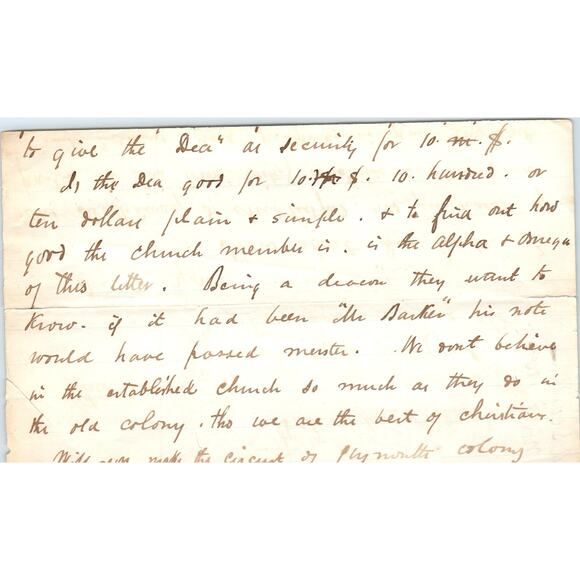 to give the "Dea" as security for 10. m. $.
Is the Dea good for 10. M $. 10. hundred. or
ten dollars plain & simple. & to find out how
good the church member is. is the Alpha & Omega
of this letter. Being a deacon they want to
know. if it had been "Mr Barker" his note
would have passed muster. We don't believe
in the established church so much as they do in
the old colony. tho we are the best of christians.
Will you make the circuit of Plymouth colony